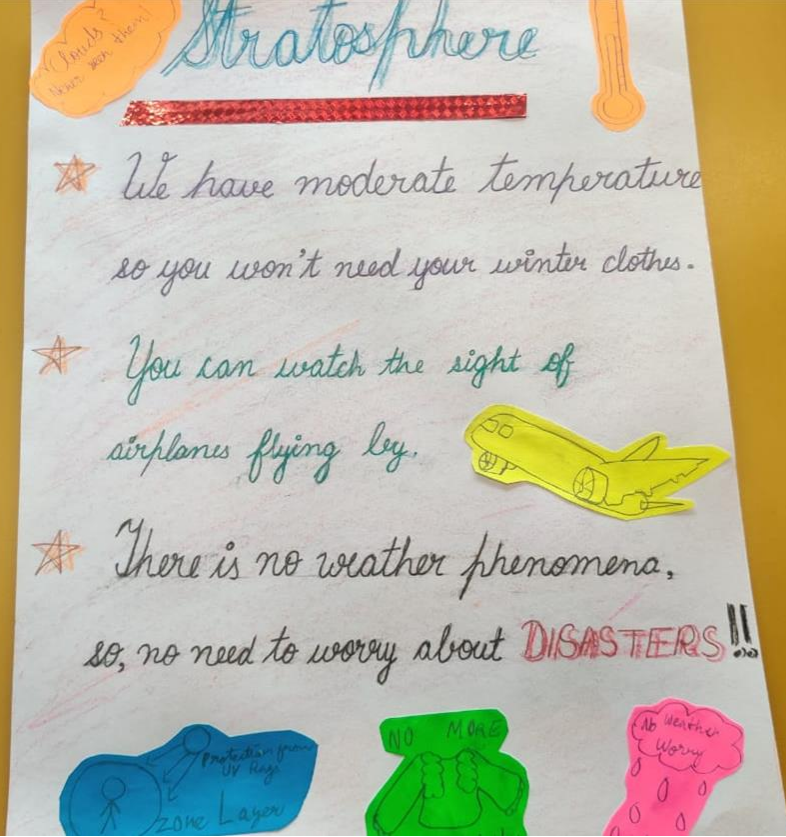 Clouds?
Never seen them!
Stratosphere
We have moderate temperature
so you won't need your winter clothes.
You can watch the sight of
airplanes flying by.
There is no weather phenomena,
so, no need to worry about DISASTERS!!
Protection from
UV Rays
zone Layer
NO MORE
No Weather
Worry